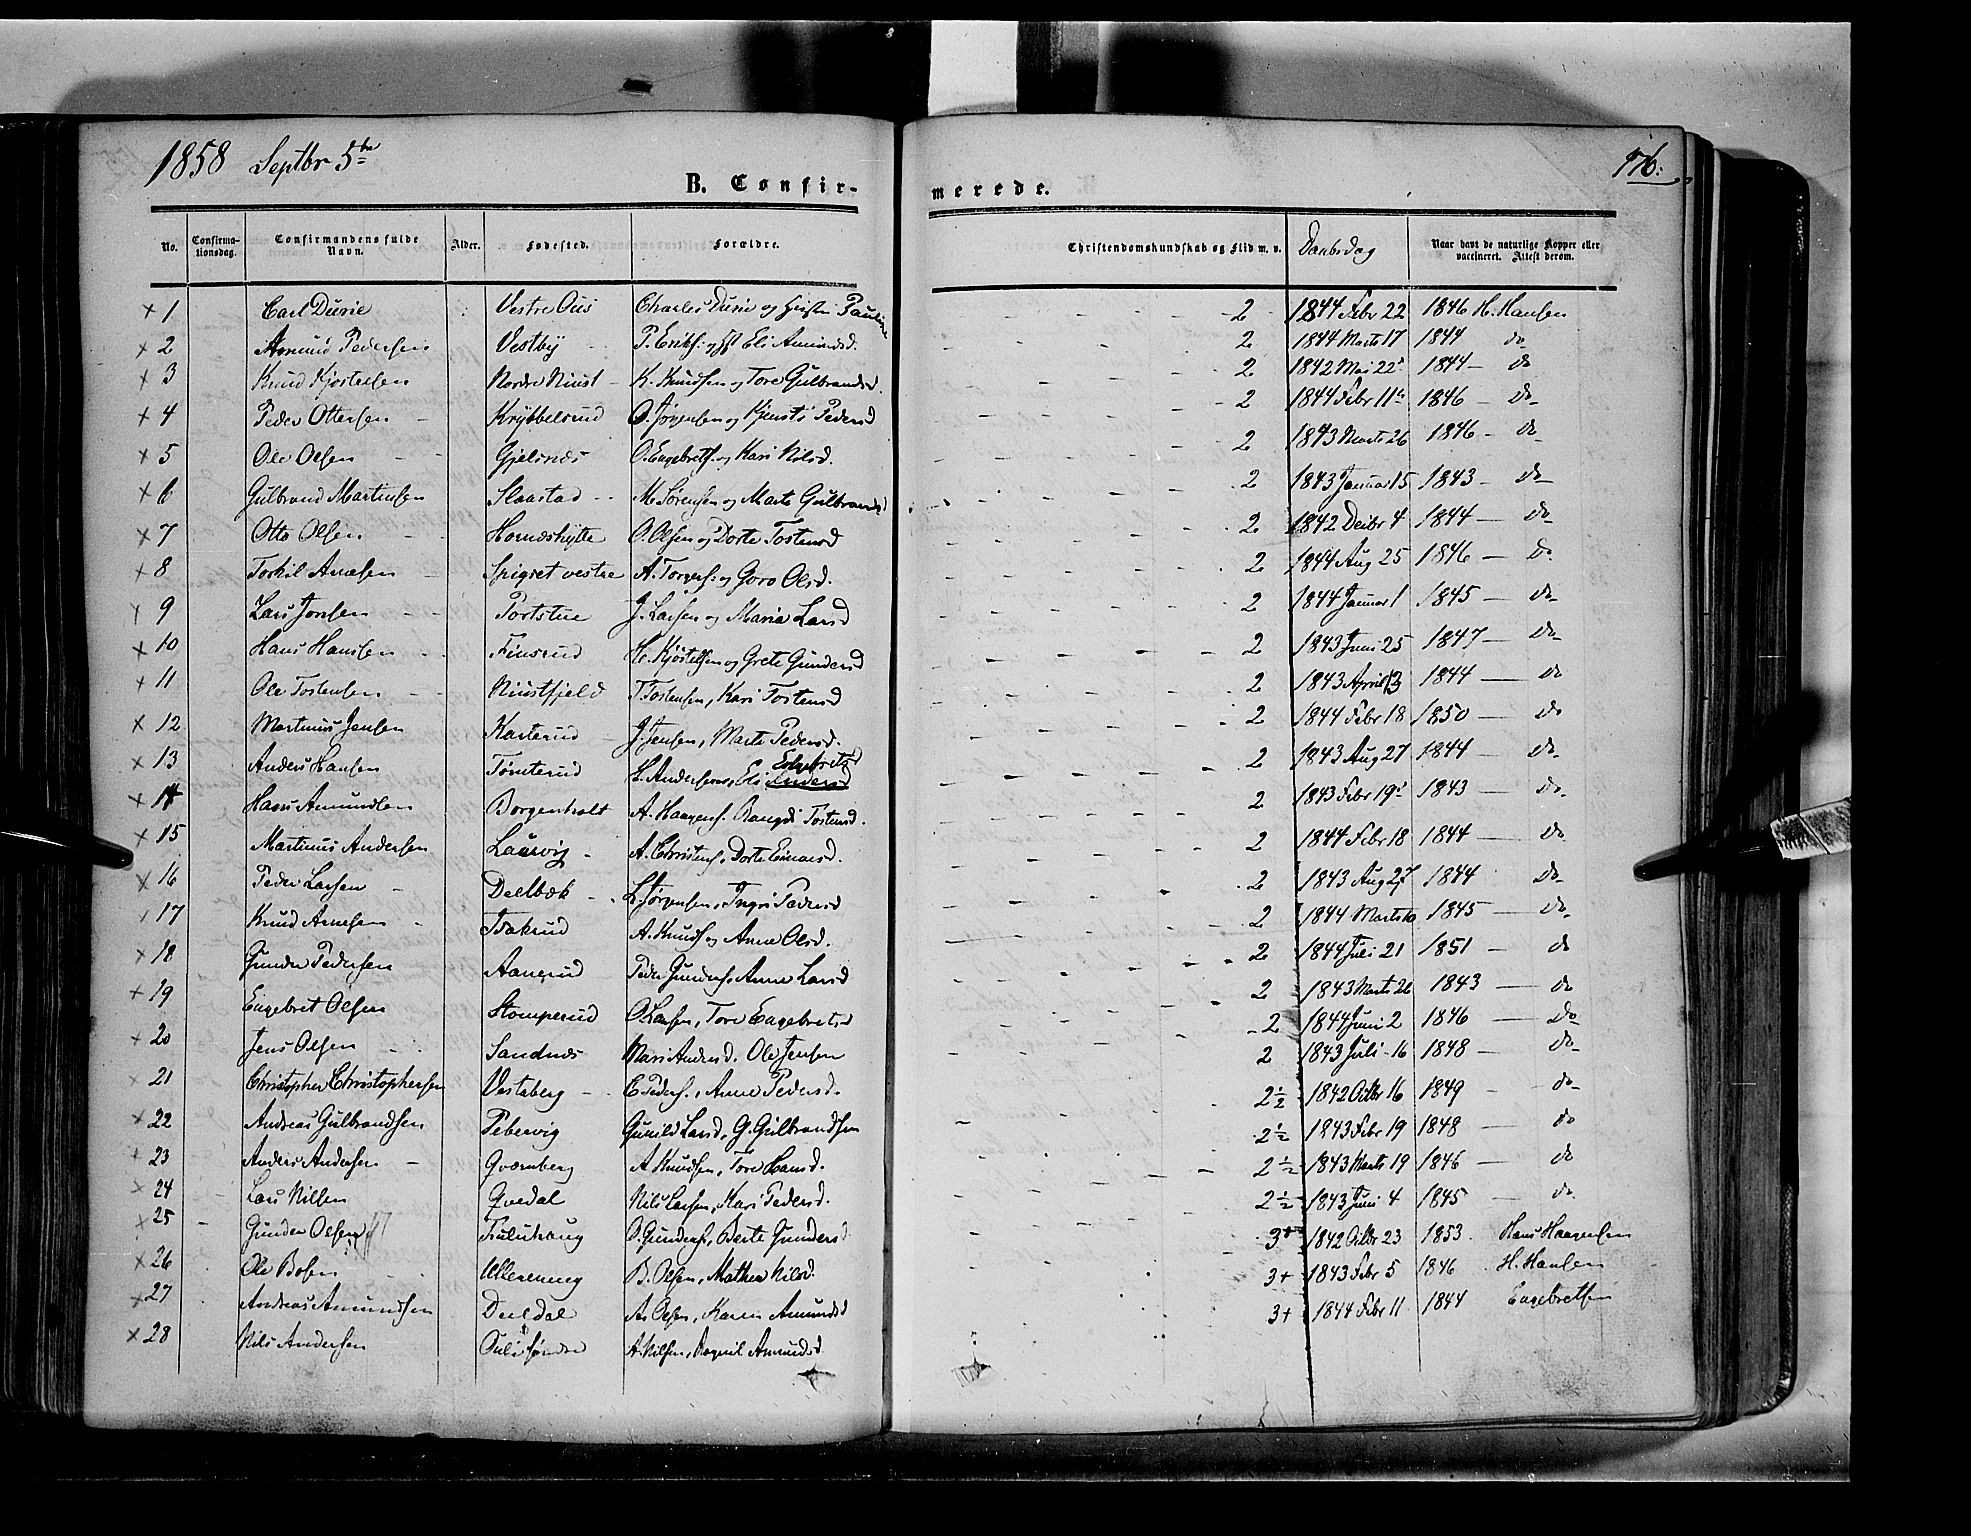 1858 Septbr 5te
176:
B. Confir-
merede.
No. Confirma-tionsdag. Confirmandens fulde Navn. Alder. Fødested. Forældre. Christendomskundskab og Flid m. v. Daabsdag Naar havt de naturlige Kopper eller vaccineret. Attest derom.
x 1 Carl Durie Vestre Ous Charles Durie og Pauline 2 1844 Febr 22 1846 H. Hansen
x 2 Amund Pedersen Vestby P. Eriks: og Eli Amundsd. 2 1844 Marts 17 1844 do
x 3 Knud Kjostelsen Nordre K. Knudsen og Tore Gulbrandsd. 2 1842 Mai 22 1844 - do
x 4 Peder Ottersen Krybbelsrud O. Jørgensen og Kjersti Pedersd 2 1844 Febr 11 1846 - Do
x 5 Ole Olsen Gjelsnæs O. Engebrets. og Kari Nilsd. 2 1843 Marts 26 1846 - do
x 6 Gulbrand Martinsen Slaastad M. Sørensen og Marte Gulbrandsd 2 1843 Januar 15 1843 - do
x 7 Otto Olsen Horneshytte O. Olsen og Dorte Tostensd 2 1842 Decbr 4 1844 - do
x 8 Torkil Arnesen Spigset vestre A. Torgers: og Goro Olsd. 2 1844 Aug 25 1846 - Do
9 Lars Jonsen Portstue J. Larsen og Maria Larsd 2 1844 Januar 1 1845 - do
x 10 Hans Hansen Finsrud H. Kjøstelsen og Grete Gundersd 2 1843 Juni 25 1847 - Do
11 Ole Tostensen T. Tostensen, Kari Tostensd 2 1843 April 13 1844 - do
x 12 Martinus Jensen Karterud J. Jensen, Marte Pedersd. 2 1844 Febr 18 1850 - do
x 13 Anders Hansen Tørsterud H. Andersen, Eli Andersd Engebretsd 2 1843 Aug 27 1844 - do
x 14 Hans Amundsen Borgenholt A. Haagens. Rangdi Tostensd. 2 1843 Febr 19 1843 - Do
x 15 Martinus Andersen Laarvig A. Christens, Dorte Einarsd. 2 1844 Febr 18 1844 - Do
x 16 Peder Larsen Deelbæk L. Jørgensen, Ingri Pedersd 2 1843 Aug 27 1844 Do
17 Knud Arnesen A. Knuds og Anne Olsd. 2 1844 Marts 10 1845 - Do
x 18 Gunder Pedersen Aanerud Peder Gunders. Anne Larsd 2 1844 Juli 21 1851 - do
x 19 Engebret Olsen Stomperud O. Larsen, Tore Engebretsd 2 1843 Marts 26 1843 - do
x 20 Jens Olsen Sandnæs Mari Andersd. Ole Jensen 2 1844 Juni 2 1846 - Do
21 Christopher Christophersen Vestberg C. Peders., Anne Pedersd. 2 1843 Juli 16 1848 - do
x 22 Andreas Gulbrandsen Pebervig Gunild Larsd, G. Gulbrandsen 2½ 1842 Octbr 16 1849 - do
23 Anders Andersen Qværnberg A. Knudsen, Tore Hansd. 2½ 1843 Febr 19 1848 - do
x 24 Lars Nilsen Qvedal Nils Larsen, Kari Pedersd. 2½ 1843 Marts 19 1846 - do
x 25 Gunder Olsen Fuluhaug O. Gunders., Berte Gundersd 2½ 1843 Juni 4 1845 - do
x 26 Ole Bosen Ullereneng B. Olsen, Mathea Nilsd. 3+ 1842 Octbr 23 1853. Hans Haagensen
x 27 Andreas Amundsen Deeldal A. Olsen, Karen Amundsd 3+ 1843 Febr 5 1846 H. Hansen
x 28 Nils Andersen Ouli søndre A. Nilsen, Ragnil Amundsd. 3+ 1844 Febr 11 1844 Engebretsen